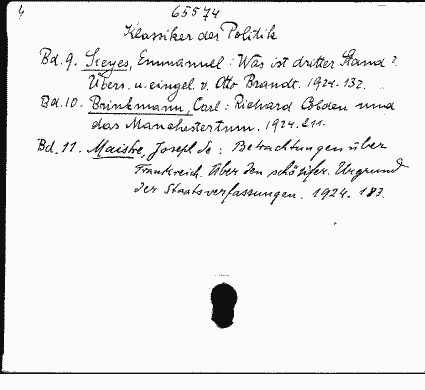 4
65574
Klassiker der Politik
Bd. 9. Sieyes, Emmanuel: Was ist dritter Stand?
Übers. u. eingel. v. Otto Brandt. 1924. 132.
Bd. 10. Brinkmann, Carl: Richard Cobden und
das Manchestertum. 1924. 211.
Bd. 11. Maistre, Joseph de: Betrachtungen über
Frankreich. Über den schöpfer. Urgrund
der Staatsverfassungen. 1924. 183.